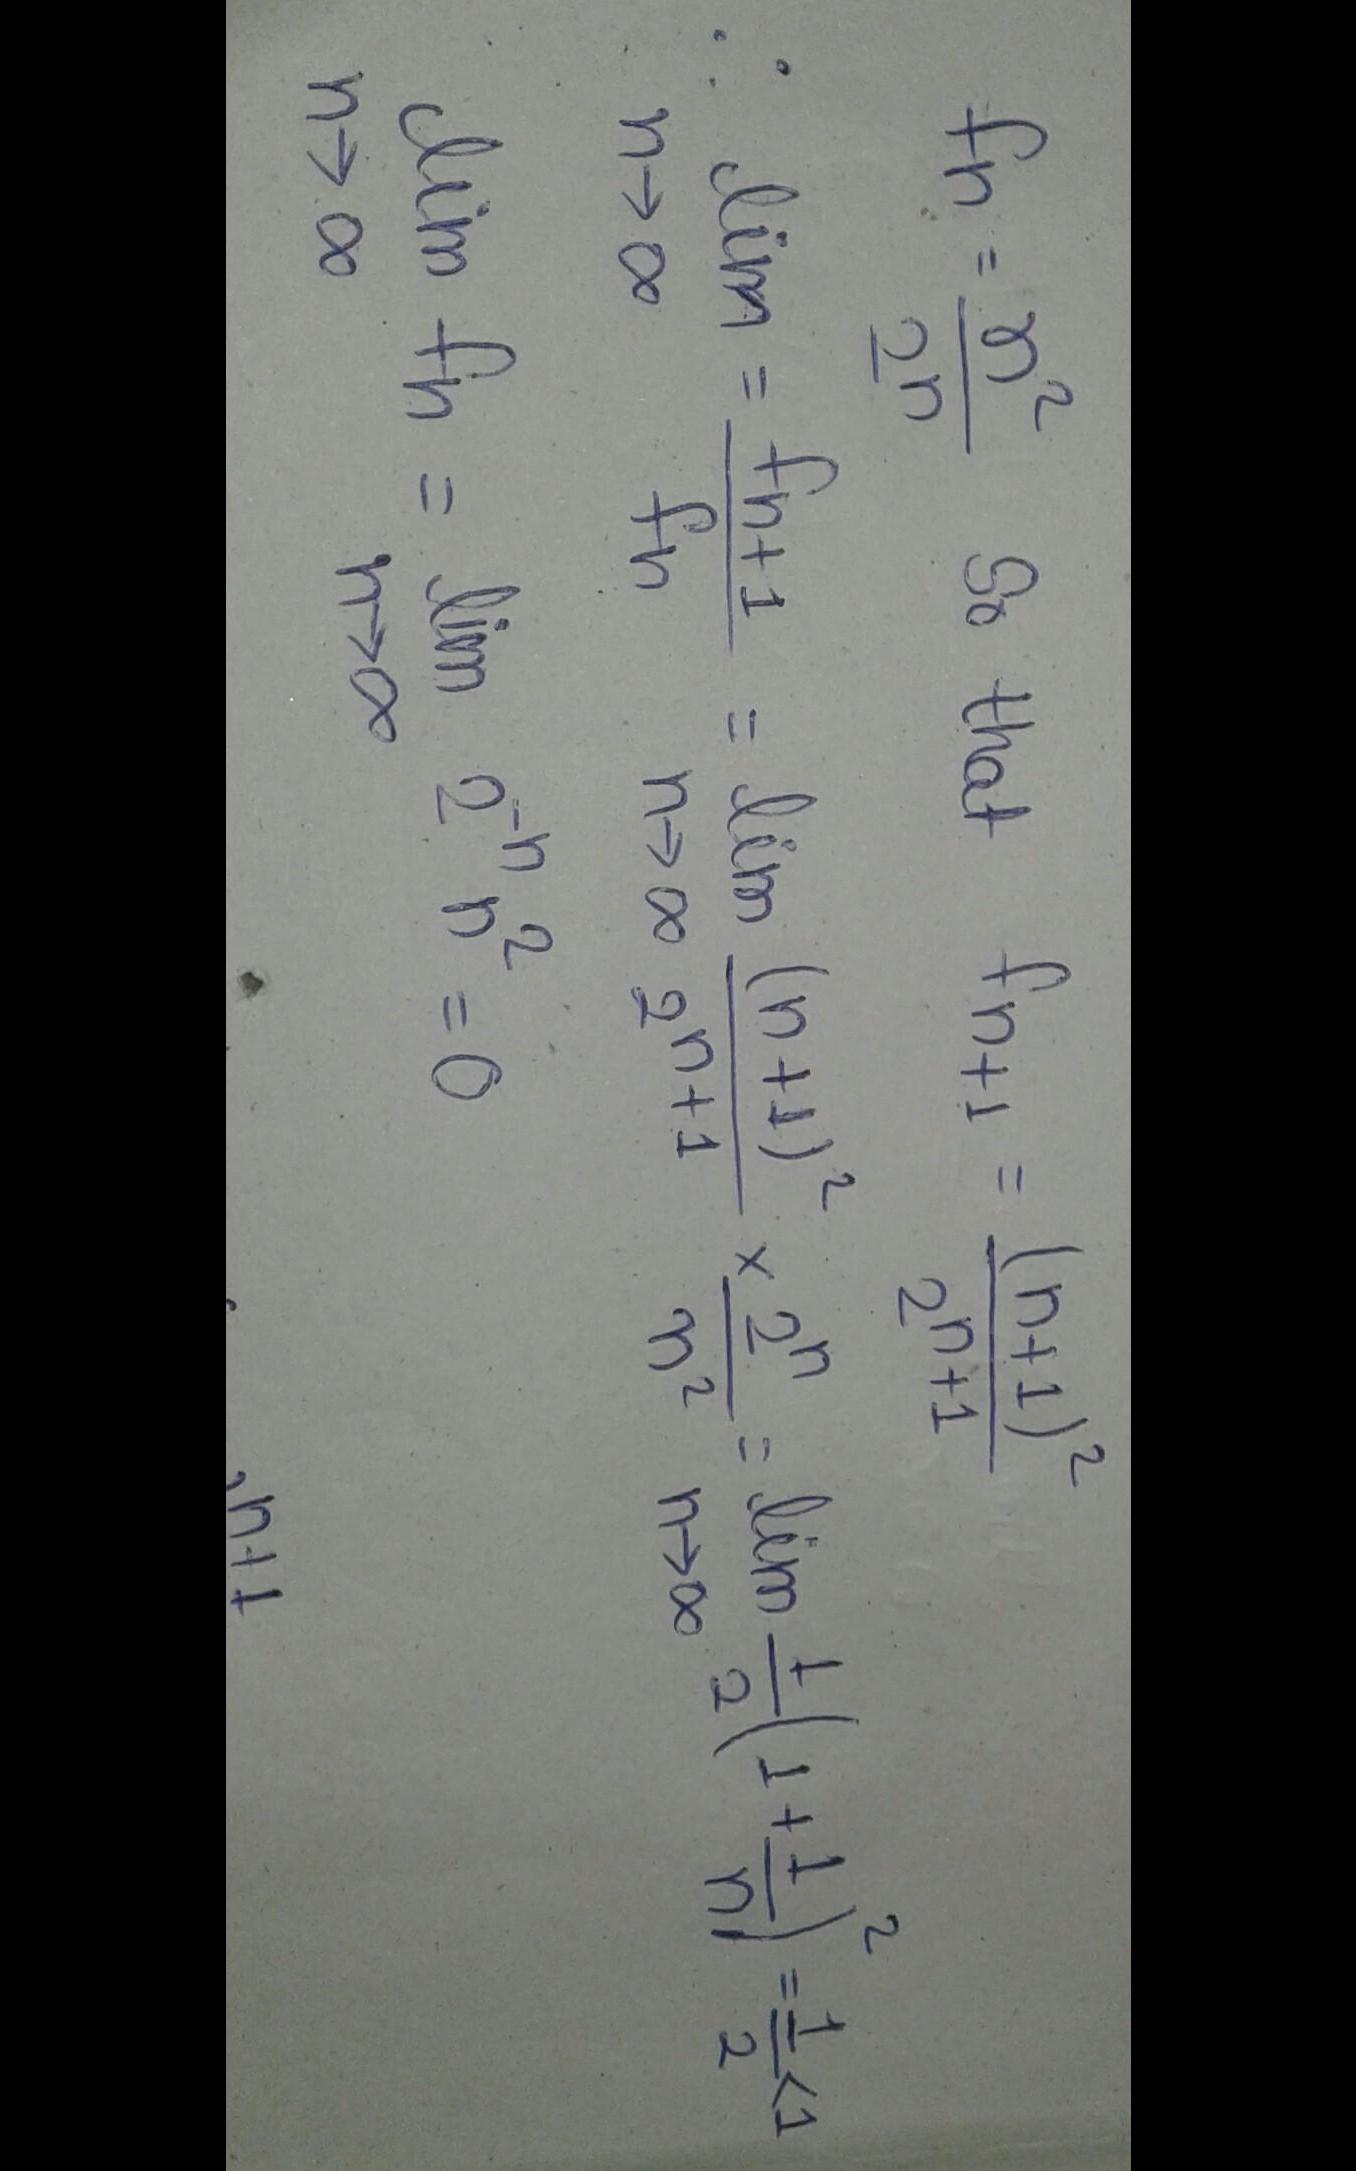 fn = n²/2ⁿ So that fn+1 = (n+1)²/2ⁿ⁺¹
∴ lim n→∞ = fn+1/fn = lim n→∞ (n+1)²/2ⁿ⁺¹ × 2ⁿ/n² = lim n→∞ 1/2(1+1/n)² = 1/2 <1
lim n→∞ fn = lim n→∞ 2⁻ⁿ n² = 0
n+1